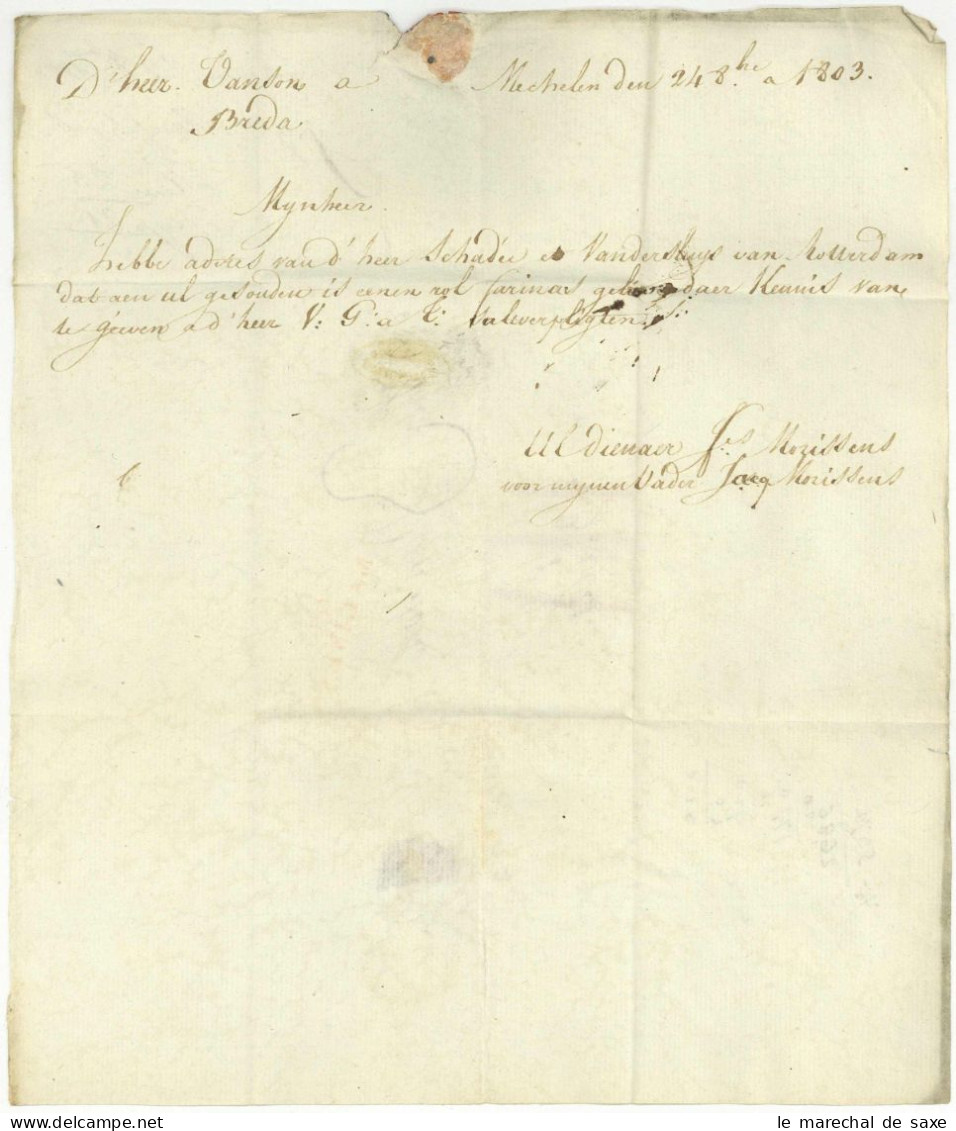 D'heer. Vanson a Mechelen den 24 8bre a 1803.
Breda
Mynheer.
hebbe advies van d'heer Schadée et Vandersluys van Rotterdam
dat aen ul gesonden is eenen rol farinas daer Kennis van
te geeven ad'heer V: G: a sal verpligten
Ul dienaer Jes Morissens
voor mynen Vader Jacq Morissens
le marechal de saxe